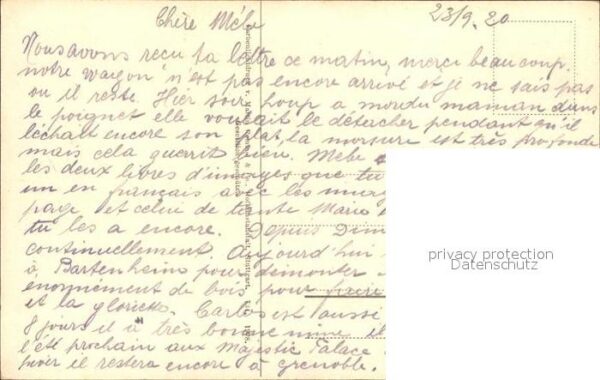 Chère Mébe 23/9. 20
Nous avons reçu ta lettre ce matin, merci beaucoup.
notre wagon n'est pas encore arrivé et je ne sais pas
ou il reste. Hier soir Loup a mordu maman dans
le poignet elle voulait le détacher pendant qu'il
léchait encore son plat, la morsure est très profonde
mais cela guerrit bien. Mébe
les deux livres d'images que tu
un en français avec les
page et celui de tante Marie
tu les a encore. Depuis Dim
continuellement. Aujourd'hui
à Bartenheim pour démonter
enormément de bois pour
et la gloriette. Carlos est aussi
8 jours il a très bonne mine il
l'été prochain aux Majestic Palace
hiver il restera encore à Grenoble.
privacy protection
Datenschutz